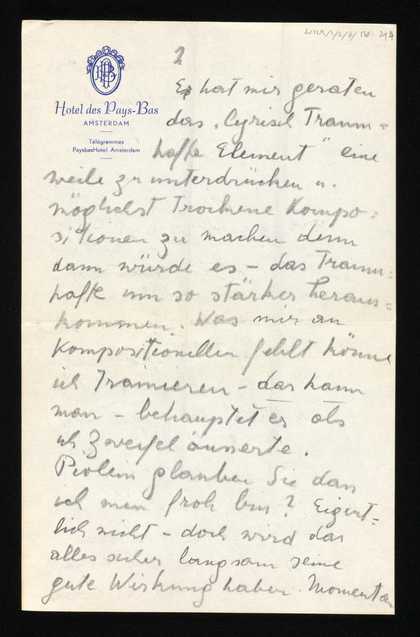 2
Hotel des Pays-Bas
AMSTERDAM
Télégrammes
PaysbasHotel Amsterdam
Er hat mir geraten
das „Lyrisch Traum=
hafte Element" eine
weile zu unterdrücken u.
möglichst Trockene Kompo=
sitionen zu machen denn
dann würde es – das Traum=
hafte um so stärker heraus=
kommen. Was mir an
Kompositionellen fehlt könne
ich Trainieren – das kann
man – behauptet er als
ich Zweifel äusserte.
glauben Sie dass
ich nun froh bin? Eigent=
lich nicht – doch wird das
alles sicher langsam seine
gute Wirkung haben. Momentan